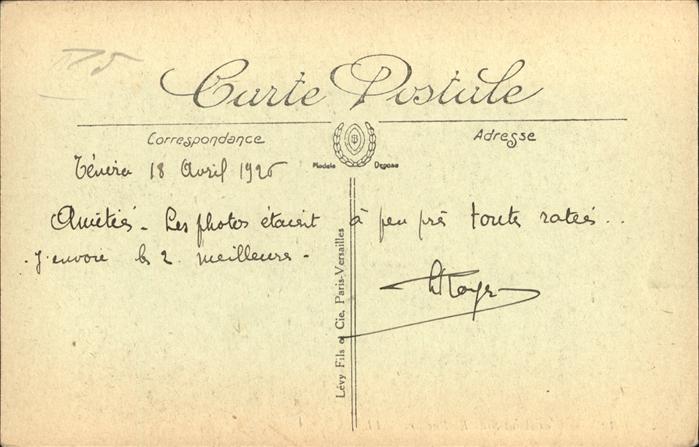 Carte Postale
Correspondance
Adresse
Modèle Déposé
18 Avril 1926
Amitiés - Les photos étaient à peu près toute ratées..
J'envoie les 2 meilleures -
Lévy Fils & Cie, Paris-Versailles